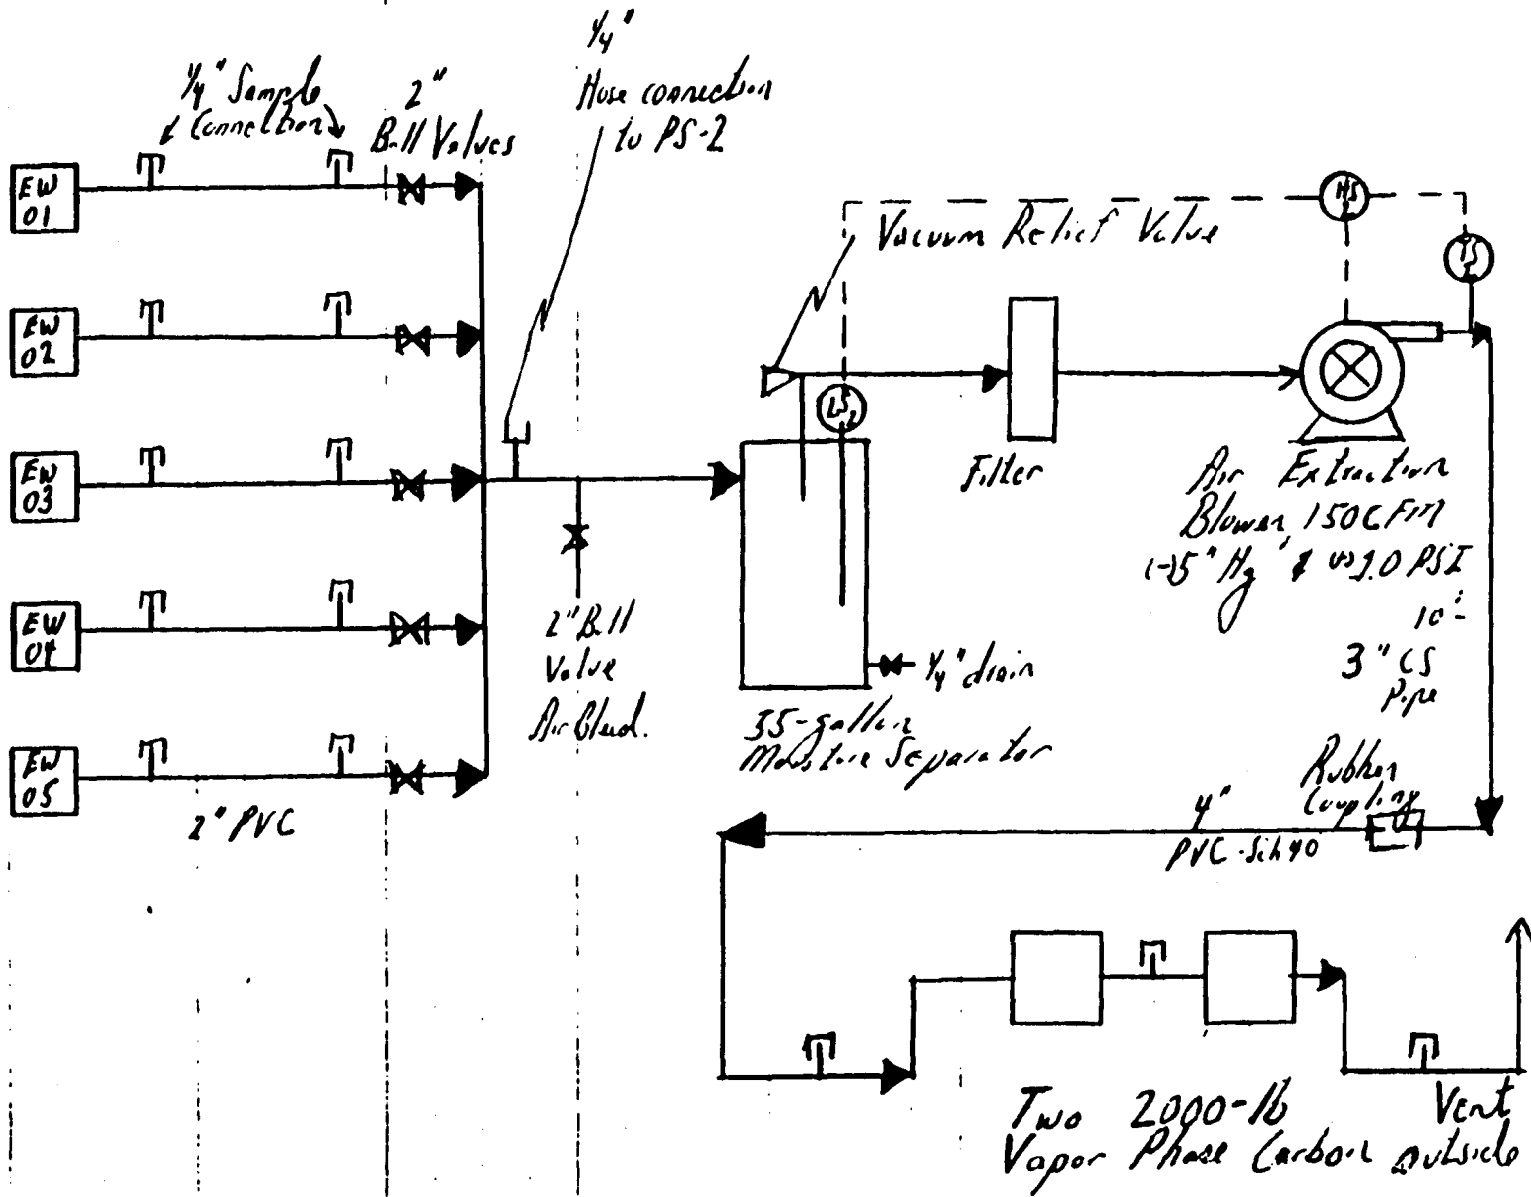 1/4"
Hose connection
to PS-2
1/4" Sample
Connection
2"
Ball Valves
EW
01
EW
02
EW
03
EW
04
EW
05
2" PVC
2" Ball
Valve
Air Bleed.
Vacuum Relief Valve
HS
LS
2
Filter
Air Extraction
Blower 150 CFM
(-)5" Hg
PSI
10'
3" CS
Pipe
1/4" drain
55-gallon
Moisture Separator
Rubber
Coupling
4"
PVC-Sch40
Two 2000-lb
Vapor Phase Carbon
Vent
outside